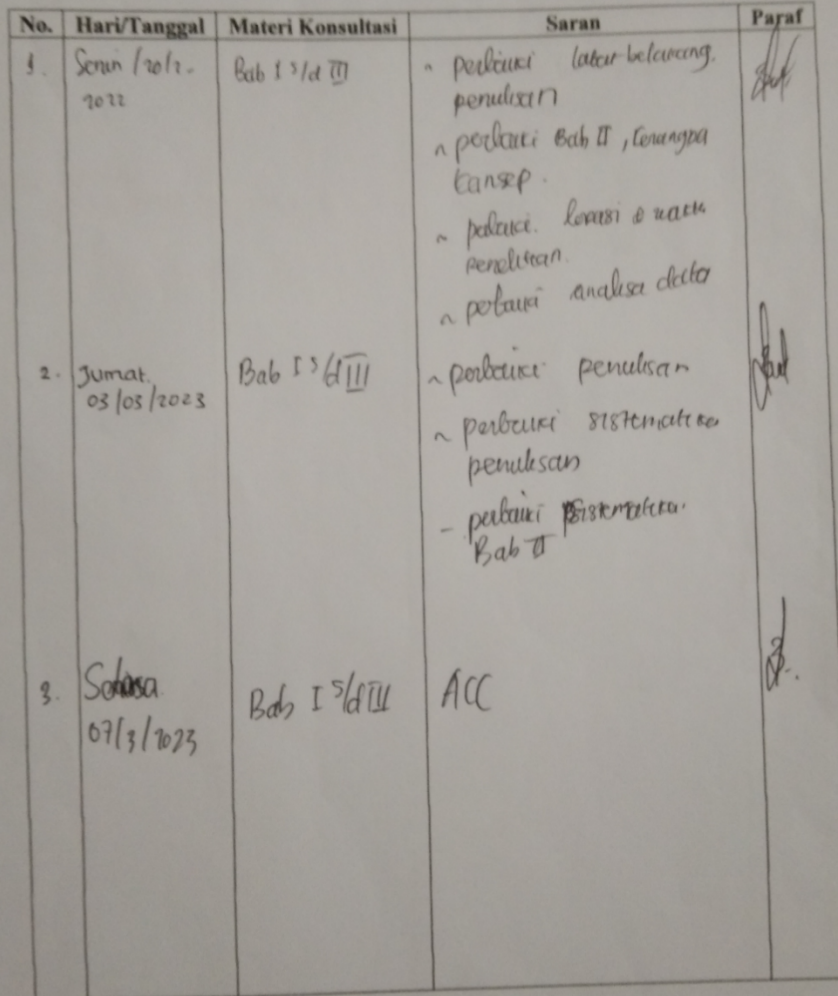 No. Hari/Tanggal Materi Konsultasi Saran Paraf
1. Senin /20/2- Bab I s/d III ~ perbaiki latar belakang.
2022 penulisan
~ perbaiki Bab II, kerangka
konsep.
~ perbaiki lokasi & waktu
penelitian.
~ perbaiki analisa data
2. Jumat. Bab I s/d III ~ perbaiki penulisan
03/03/2023 ~ perbaiki sistematika
penulisan
- perbaiki sistematika.
Bab II
3. Selasa Bab I s/d III ACC
07/3/2023